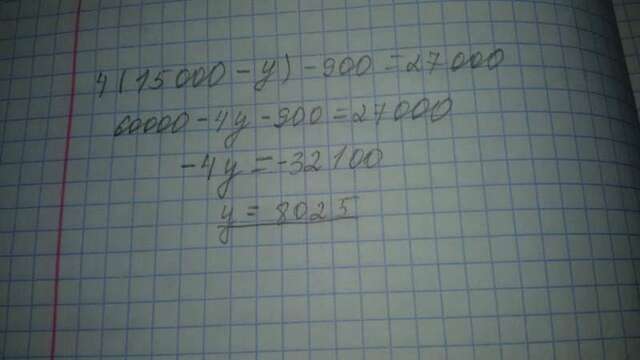 4(15000-y)-900=27000
60000-4y-900=27000
-4y=-32100
y=8025